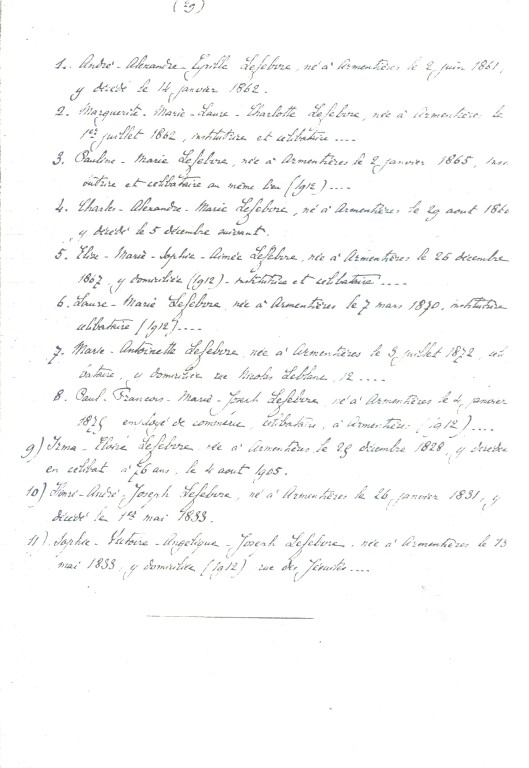 1. André-Alexandre-Cyrille Lefebvre, né à Armentières le 2 juin 1861,
y décédé le 14 janvier 1862.
2. Marguerite-Marie-Laure-Charlotte Lefebvre, née à Armentières le
1er juillet 1862, institutrice et célibataire ....
3. Pauline-Marie Lefebvre, née à Armentières le 2 janvier 1865, insti
tutrice et célibataire au même lieu (1912) ....
4. Charles-Alexandre-Marie Lefebvre, né à Armentières le 29 aout 186
y décédé le 5 décembre suivant.
5. Elise-Marie-Sophie-Aimée Lefebvre, née à Armentières le 26 décembre
1867, y domiciliée (1912) - institutrice et célibataire ....
6. Laure-Marie Lefebvre, née à Armentières le 7 mars 1870, institutrice
célibataire (1912) ....
7. Marie-Antoinette Lefebvre, née à Armentières le 3 juillet 1872, céli
bataire, y domiciliée rue Nicolas Leblanc, 12 ....
8. Paul-François-Marie-Joseph Lefebvre, né à Armentières le 4 janvier
1875 employé de commerce, célibataire, à Armentières (1912) ....
9) Irma-Eloïse Lefebvre, née à Armentières le 29 décembre 1828, y décédée
en célibat à 76 ans, le 4 aout 1905.
10) Henri-André-Joseph Lefebvre, né à Armentières le 26 janvier 1831, y
décédé le 1er mai 1833.
11) Sophie-Victoire-Angélique-Joseph Lefebvre, née à Armentières le 13
mai 1833, y domiciliée (1912) rue des Jésuites ....